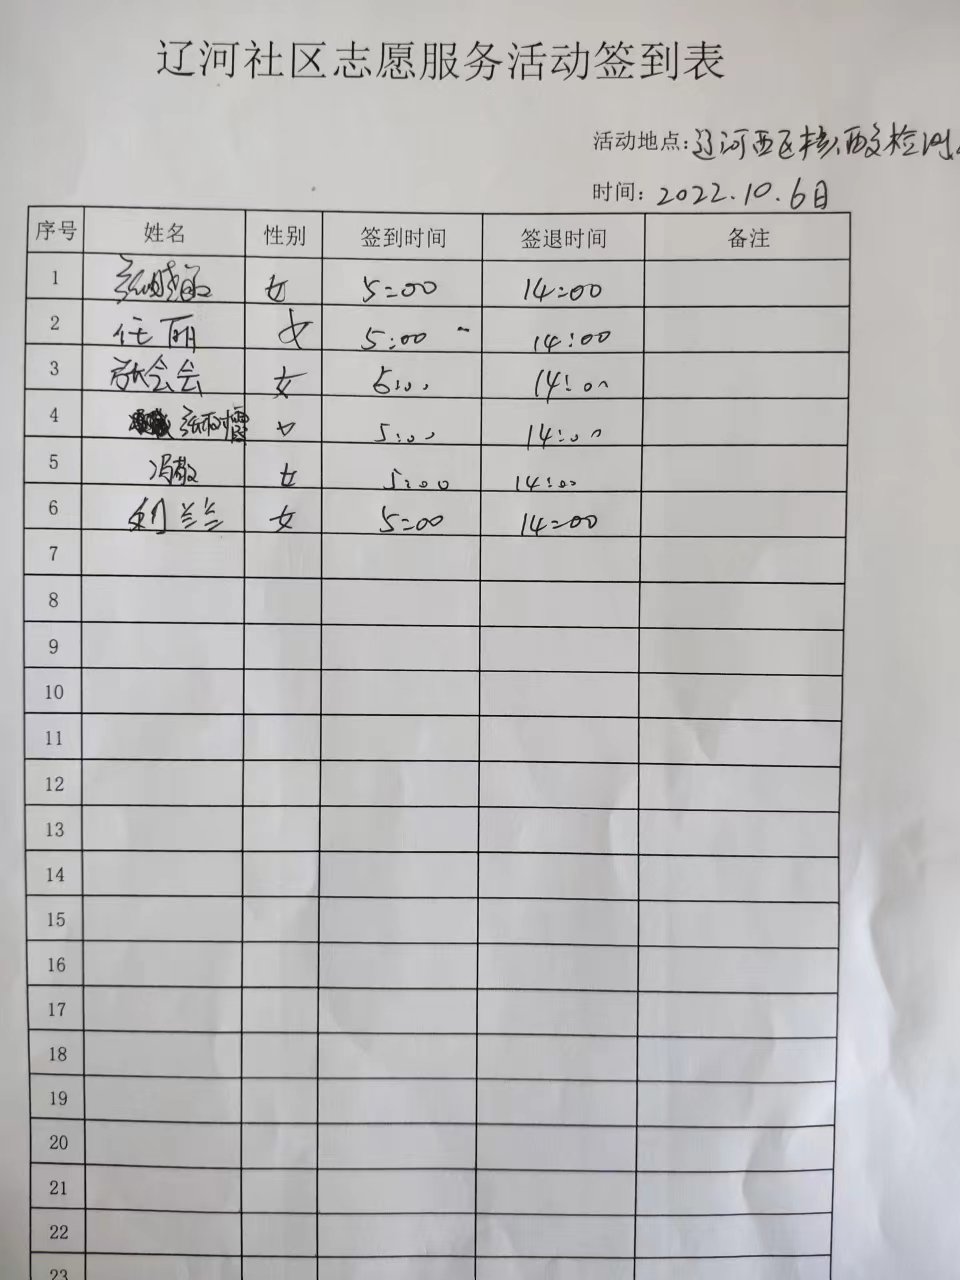 辽河社区志愿服务活动签到表
活动地点:辽河西区核酸检测
时间:2022.10.6日
序号 姓名 性别 签到时间 签退时间 备注
1 女 5:00 14:00
2 任丽 女 5:00 14:00
3 张会会 女 6:00 14:00
4 张雨 女 5:00 14:00
5 冯敏 女 5:00 14:00
6 兰兰 女 5:00 14:00
7
8
9
10
11
12
13
14
15
16
17
18
19
20
21
22
23